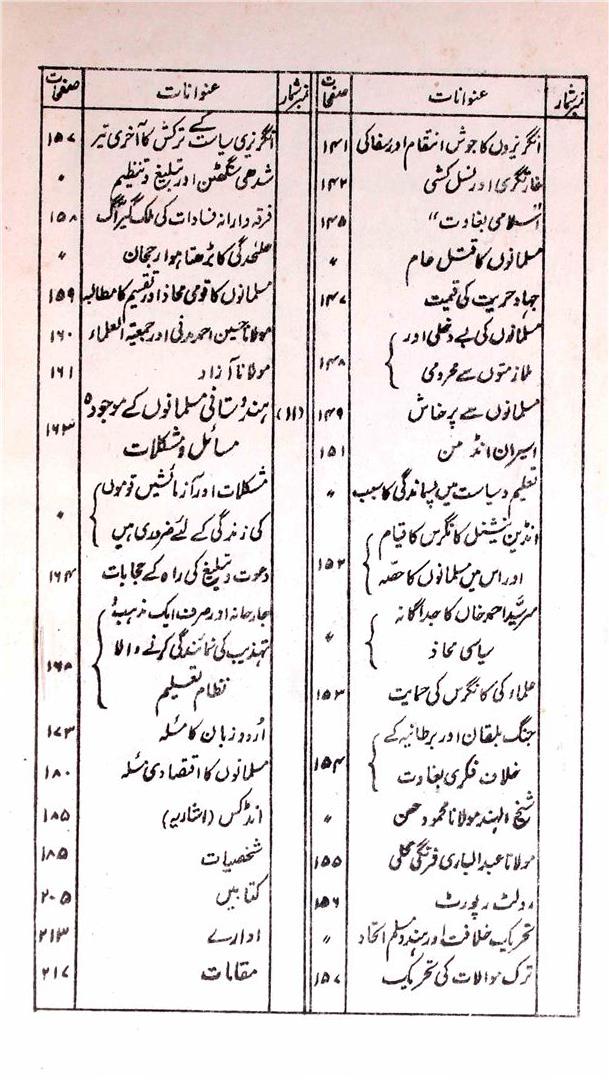 نمبر شمار عنوانات صفحات
انگریزوں کا جوش انتقام اور سفاکی ۱۴۱
غارتگری اور نسل کشی ۱۴۲
"اسلامی بغاوت" ۱۴۵
مسلمانوں کا قتل عام 〃
جہاد حریت کی قیمت ۱۴۷
مسلمانوں کی بے دخلی اور
ملازمتوں سے محرومی ۱۴۸
مسلمانوں سے پرخاش ۱۴۹
اسیران انڈمن ۱۵۱
تعلیم و سیاست میں پسماندگی کا سبب 〃
انڈین نیشنل کانگرس کا قیام
اور اس میں مسلمانوں کا حصہ ۱۵۲
سرسیّد احمد خاں کا جداگانہ
سیاسی محاذ 〃
علماء کی کانگرس کی حمایت ۱۵۳
جنگ بلقان اور برطانیہ کے
خلاف فکری بغاوت ۱۵۴
شیخ الہند مولانا محمود حسن 〃
مولانا عبدالباری فرنگی محلی ۱۵۵
رولٹ رپورٹ ۱۵۶
تحریک خلافت اور ہندو مسلم اتحاد 〃
ترک موالات کی تحریک ۱۵۷
نمبر شمار عنوانات صفحات
انگریزی سیاست کے ترکش کا آخری تیر ۱۵۷
شدھی سنگھٹن اور تبلیغ و تنظیم 〃
فرقہ دارانہ فسادات کی ملک گیر آگ ۱۵۸
علٰحدگی کا بڑھتا ہوا رجحان 〃
مسلمانوں کا قومی محاذ اور تقسیم کا مطالبہ ۱۵۹
مولانا حسین احمد مدنی اور جمعیۃ العلماء ۱۶۰
مولانا آزاد ۱۶۱
(۱۱) ہندوستانی مسلمانوں کے موجودہ
مسائل و مشکلات ۱۶۳
مشکلات اور آزمائشیں قوموں
کی زندگی کے لئے ضروری ہیں 〃
دعوت و تبلیغ کی راہ کے حجابات ۱۶۴
جارحانہ اور صرف ایک مذہب و
تہذیب کی نمائندگی کرنے والا
نظام تعلیم ۱۶۸
اُردو زبان کا مسئلہ ۱۷۳
مسلمانوں کا اقتصادی مسئلہ ۱۸۰
انڈکس (اشاریہ) ۱۸۵
شخصیات ۱۸۵
کتابیں ۲۰۵
ادارے ۲۱۳
مقامات ۲۱۷